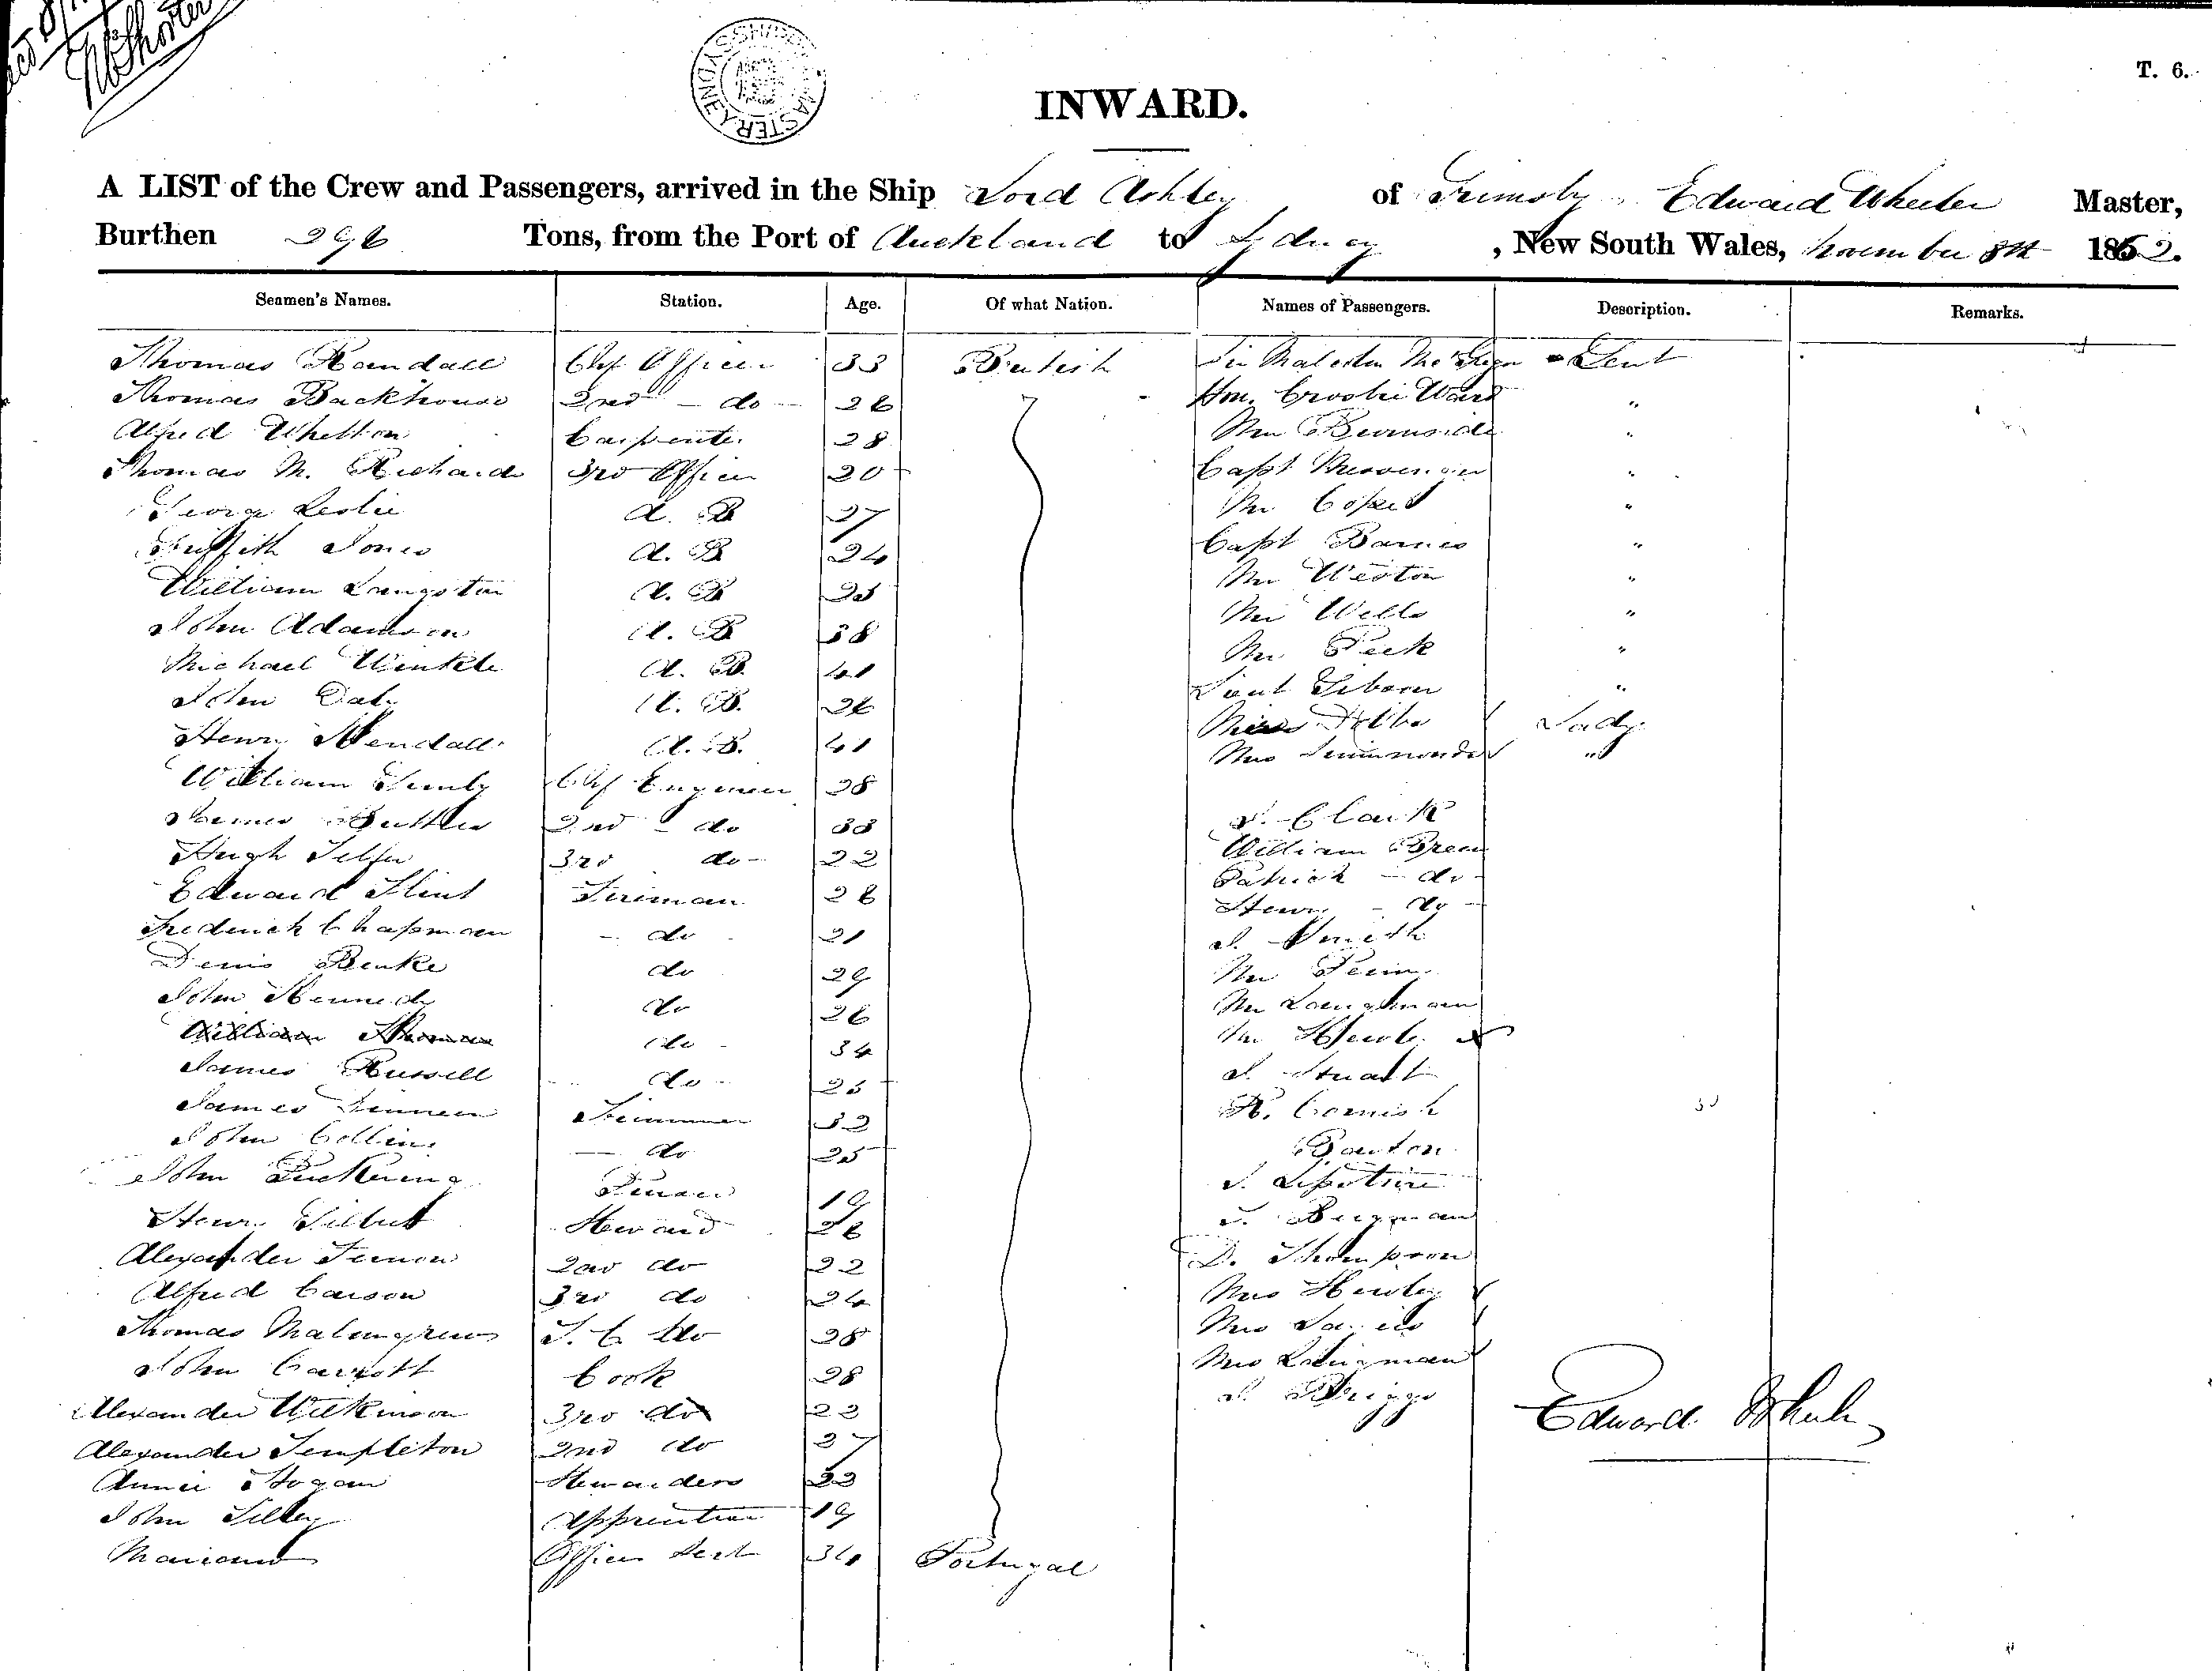 T. 6.
INWARD.
A LIST of the Crew and Passengers, arrived in the Ship Lord Ashley of Grimsby Edward Wheeler Master,
Burthen 296 Tons, from the Port of Auckland to Sydney, New South Wales, November 8th 1862.
Seamen's Names. Station. Age. Of what Nation. Names of Passengers. Description. Remarks.
Thomas Randall Chf Officer 33 British Sir Malcolm McGregor Gent
Thomas Backhouse 2nd - do - 26 Hon. Crosbie Ward "
Alfred Whetton Carpenter 28 Mr Burnside "
Thomas M. Richards 3rd Officer 20 Capt "
George Leslie A. B 27 Mr "
Griffith Jones A. B 24 Capt Barnes "
William Langston A. B 25 Mr Weston "
John Adamson A. B 38 Mr Wells "
Michael Winkle A. B. 41 Mr Peek "
John Daly A. B. 26 "
Henry Kendall A. B. 41 Lady
Mrs Simmonds "
William Chf Engineer 28
James 2nd - do 33 J. Clark
Hugh Telfer 3rd do - 22 William Green
Edward Flint Fireman 26 Patrick - do -
Henry - do -
Frederick Chapman - do - 21 J. Smith
Denis Burke do 29 Mr
John Kennedy do 26 Mr Langman
William Thomas do - 34 Mr Hewley
James Russell do - 25 J. Stuart
James Trimmer 32 R. Cornish
John Collins - do 25 Barton
John Pickering 19 J.
Henry Steward 26 J. Bergman
Alexander 2nd do 22 D. Thompson
Alfred Carson 3rd do 24 Mrs Hewley
Thomas do 28 Mrs
John Cook 28 Mrs Langman
Alexander Wilkinson 3rd do 22 J. Briggs
Edward Wheeler
Alexander Templeton 2nd do 27
Annie Hogan Stewardess 22
John Tilley Apprentice 19
Mariano Officer 34 Portugal